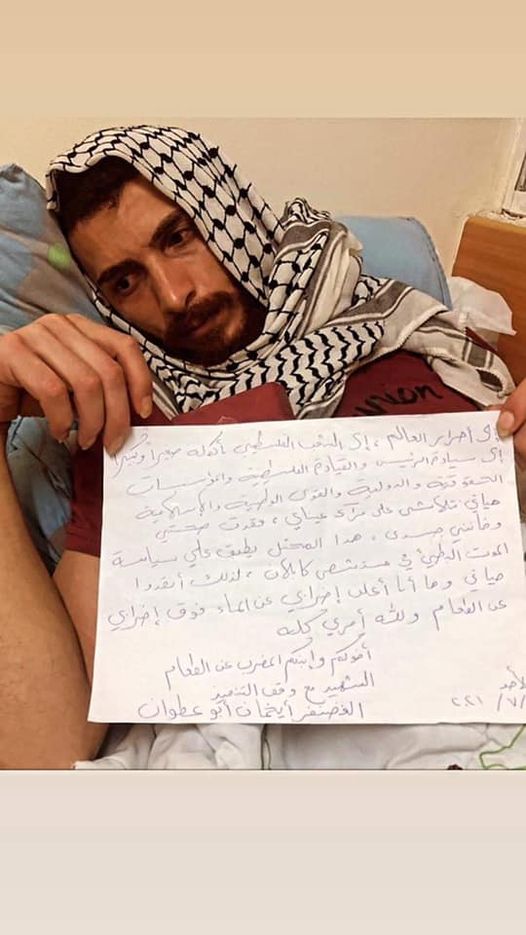 union
إلى أحرار العالم، إلى الشعب الفلسطيني بأكمله صغيراً وكبيراً
إلى سيادة الرئيس والقيادة الفلسطينية والمؤسسات
الحقوقية والدولية والقوى الوطنية والإسلامية
حياتي تتلاشى على مرأى عيناي، وفقدت صحتي
وخانني جسدي، هذا المحتل يطبق علي سياسة
الموت البطيء في مستشفى كابلان، لذلك أنقذوا
حياتي وها أنا أعلن إضرابي عن الماء فوق إضرابي
عن الطعام ولله أمري كله
أخوكم وابنكم المضرب عن الطعام
الشهيد مع وقف التنفيذ
الغضنفر أيخمان أبو عطوان
الأحد
/٧/ ٢٠٢١